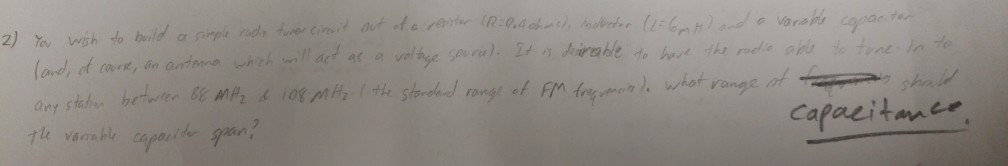 2) You wish to build a simple radio tuner circuit out of a resistor (R=0.4 ohms), inductor (L=6mH) and a variable capacitor
(and, of course, an antenna which will act as a voltage source). It is desireable to have the radio able to tune-in to
any station between 88 MHz & 108 MHz (the standard range of FM frequencies). What range of should
capacitance
the variable capacitor span?